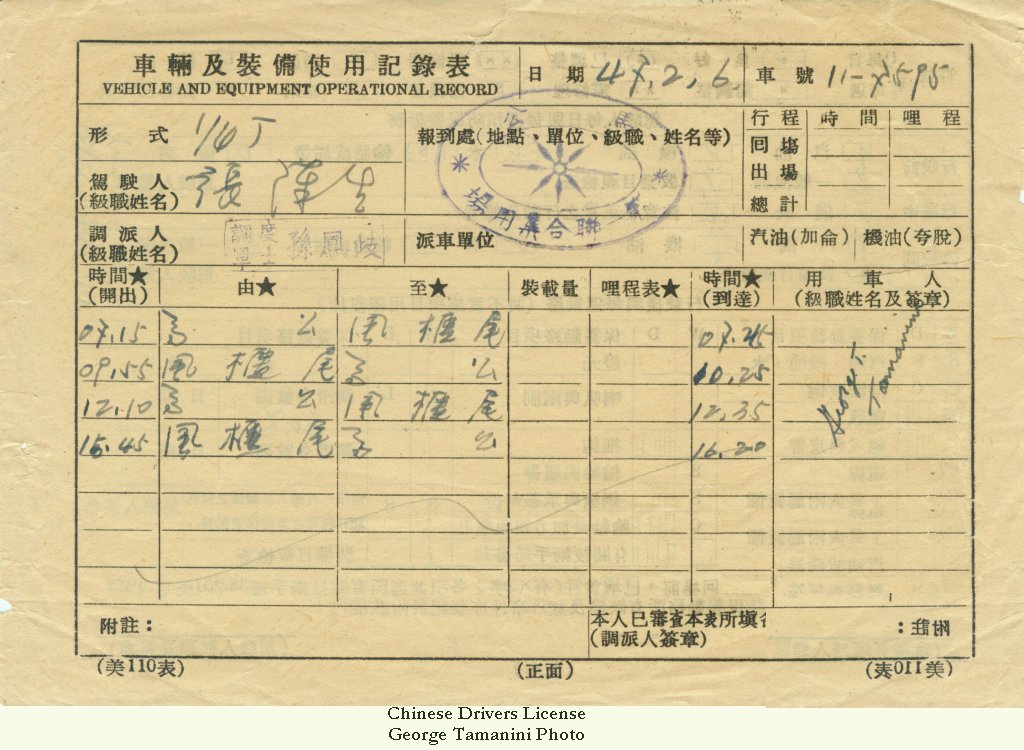 車輛及裝備使用記錄表
VEHICLE AND EQUIPMENT OPERATIONAL RECORD
日期 47.2.6. 車號 11-X595
形式 1/4 T
報到處(地點、單位、級職、姓名等)
行程 時間 哩程
回塲
出場
總計
駕駛人
(級職姓名) 張
聯合業用
調派人
(級職姓名)
調度士 孫鳳岐
派車單位
汽油(加侖) 機油(夸脫)
時間★
(開出)
由★ 至★ 裝載量 哩程表★
時間★
(到達)
用車人
(級職姓名及簽章)
07.15 公 風櫃尾 07.45
09.55 風櫃尾 公 10.25
12.10 公 風櫃尾 12.35
15.45 風櫃尾 公 16.20
George T.
Tamanini
附註：
本人已審查本表所填
(調派人簽章)
附註：
(美110表) (正面) (美110表)
Chinese Drivers License
George Tamanini Photo